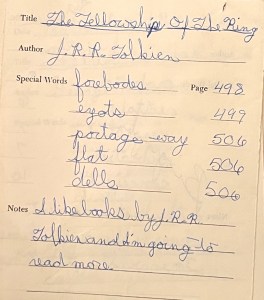 Title The Fellowship Of The Ring
Author J. R. R. Tolkien
Special Words forebodes Page 498
eyots 499
portage-way 506
flat 506
dells 506
Notes I like books by J.R.R.
Tolkien and I'm going to
read more